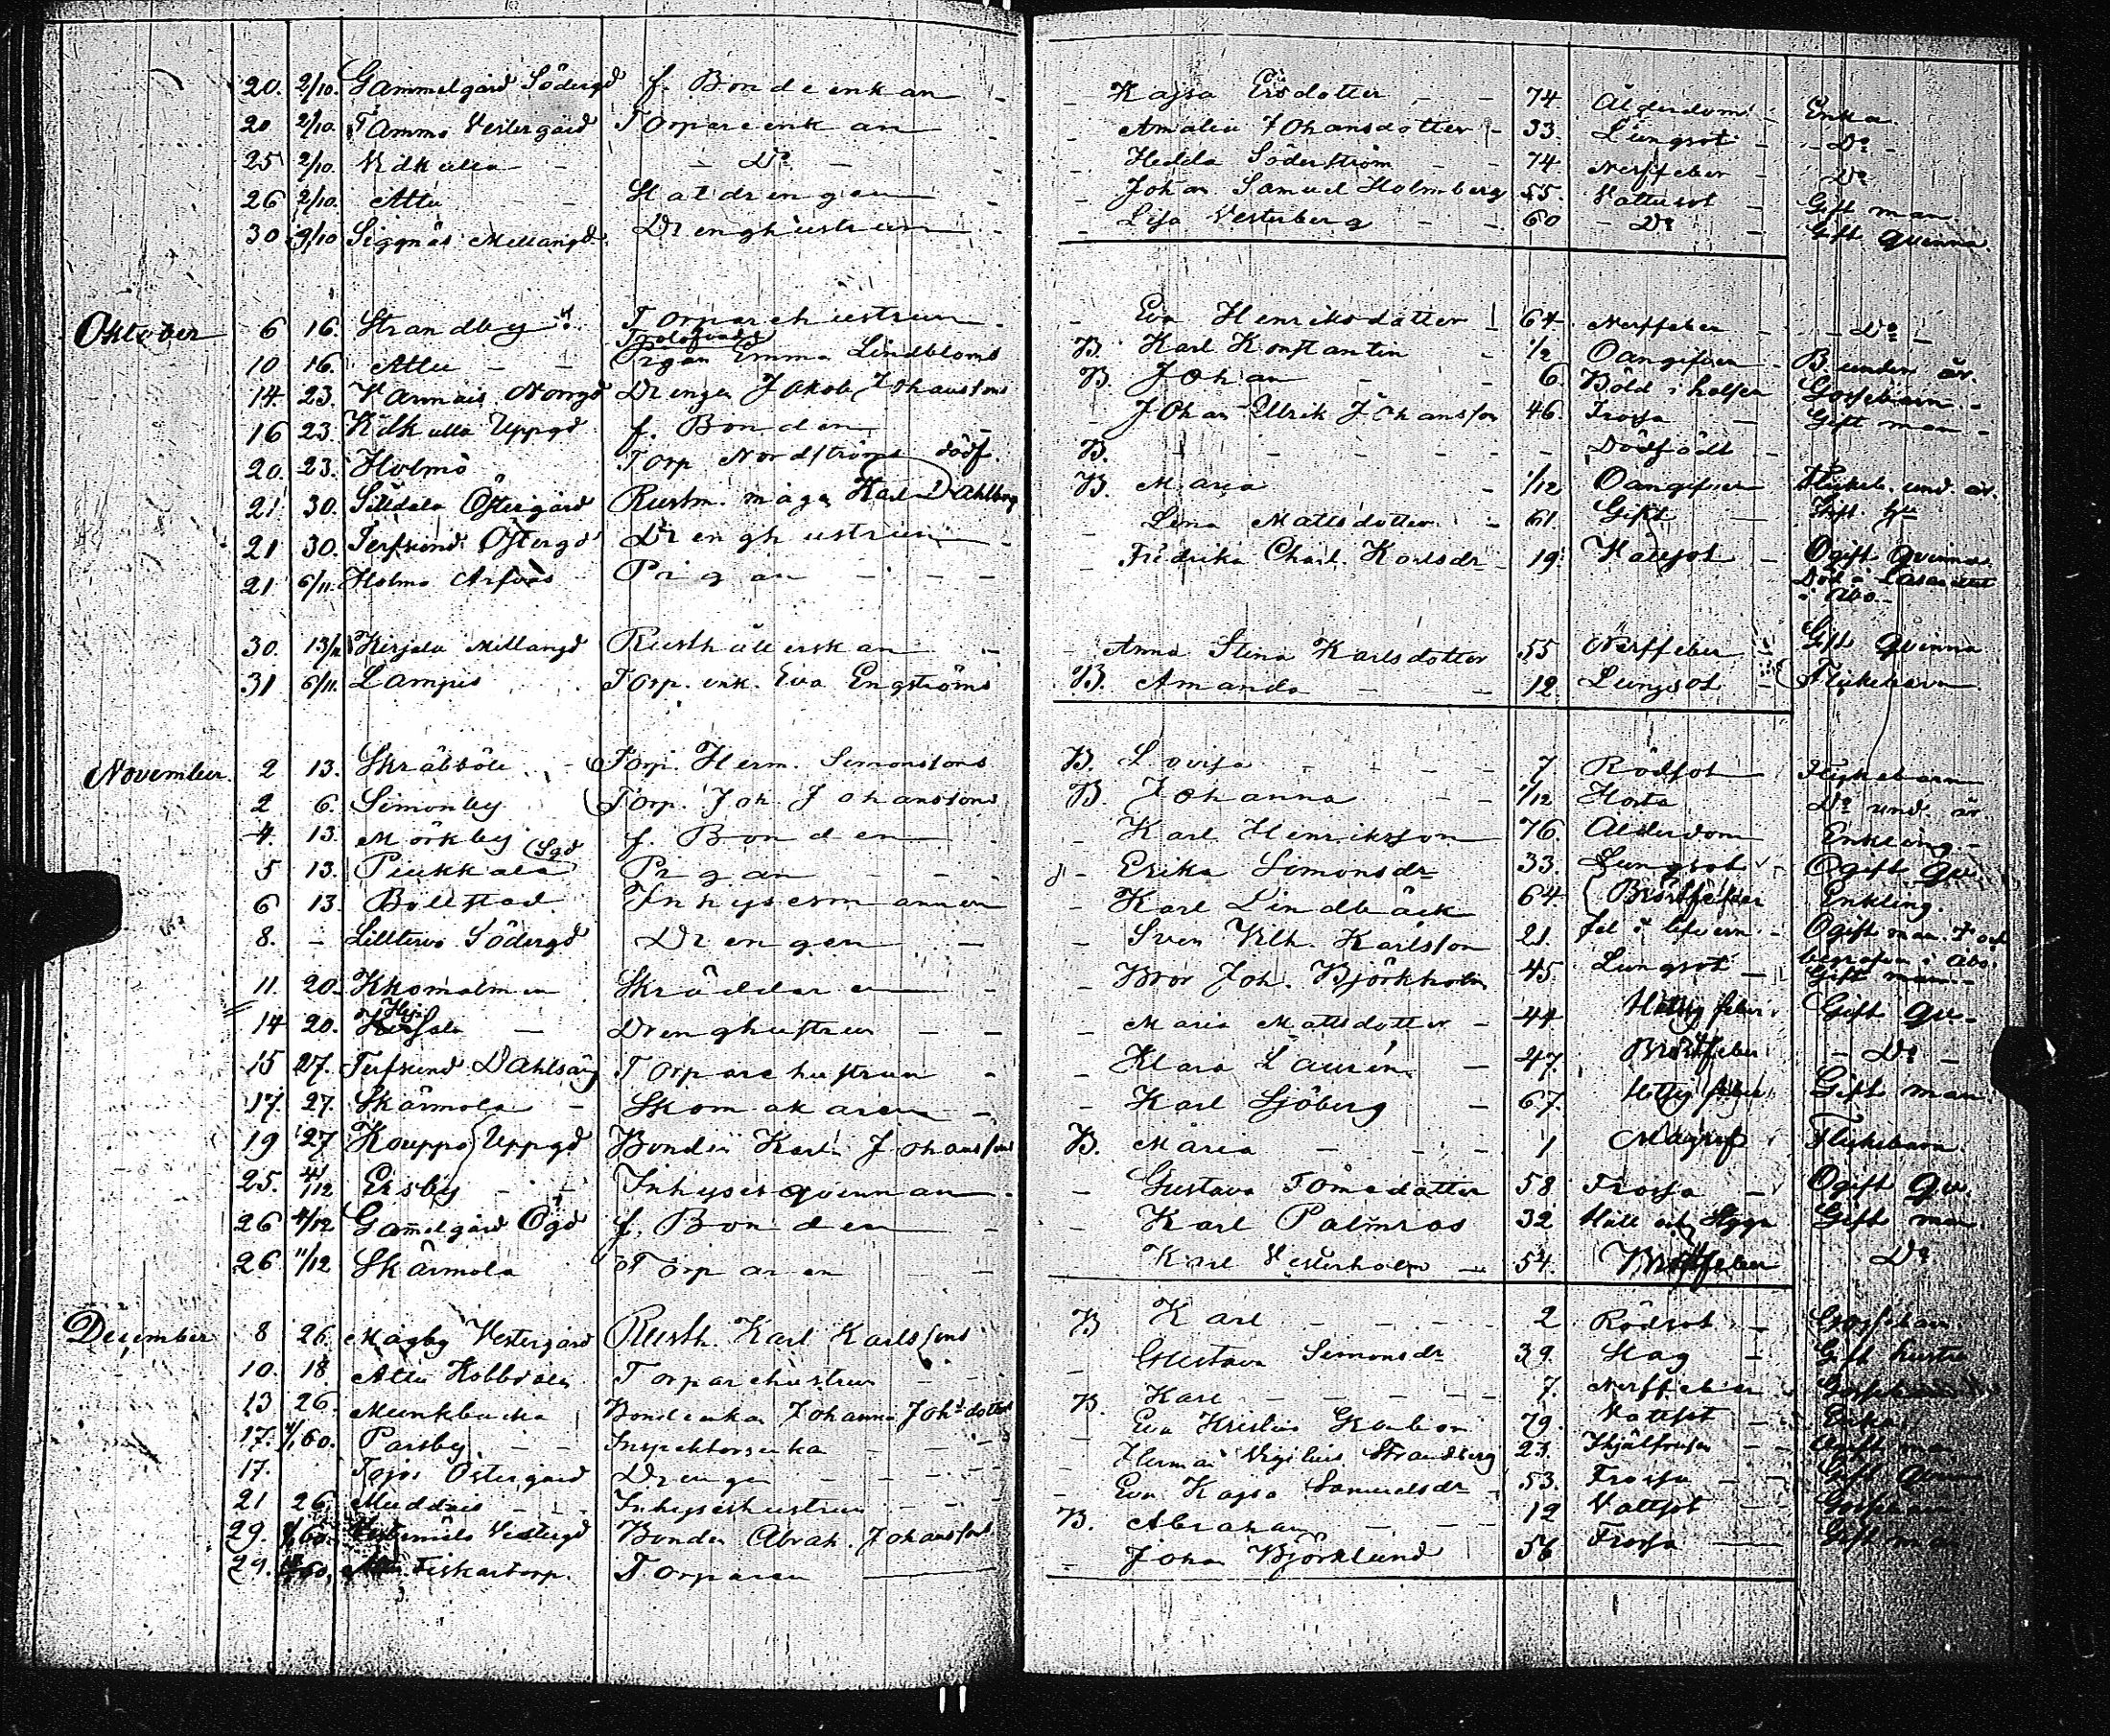 20. 2/10. Gammelgård Södergd f. Bondeenkan - Kajsa Ersdotter - - 74 Ålderdom - Enka
20 2/10. Tammo Vestergård Torpareenkan - Amalia Johansdotter - 33. Lungsot - - Do -
25 2/10. Vikulla - - Do - - Hedda Söderström - - 74 Nerffeber - Do
26 2/10. Attu - - Staldrengen - Johan Samuel Holmberg 55. Vattusot - Gift man
30 9/10 Siggnäs Mellangd. Drenghustrun - Lisa Vesterberg - - 60 - Do - Gift qvinna.
Oktober 6 16. Strandby Torparehustrun. - Eva Henriksdotter 64 Nerffeber - - Do -
10 16. Attu - - Pigan Emma Lindbloms B. Karl Konstantin - 1/2 Oangifven - B. under år.
14. 23. Varnäis Norrgd Drengen Jakob Johanssons B. Johan - - 6. Böld i halsen Gossebarn -
16 23. Kilkulla Uppgd. f. Bonden - Johan Ulrik Johansson 46. Frossa - Gift man -
20. 23. Holmo Torp Nordströms dödf. B. - - - - - Dödfödt -
21 30. Silldala Östergård Rustm. mågen Karl Dahlberg B. Maria - 1/12 Oangifven Flickeb. und. år.
21 30. Terfsund Östergd Drenghustrun - Lena Mattsdotter - 61. Gikt - Gift
21 6/11. Holmo Arfvas Pigan - - - Fredrika Charl. Karlsdr 19. - Ogift qvinna. Död å Lasarettet i Åbo.
30. 13/11 Kirjala Mellangd Rusthållerskan - Anna Stina Karlsdotter 55 Nerffeber - Gift qvinna
31 6/11. Lampis Torp. enk. Eva Engströms B. Amanda - - 12. Lungsot - Flickebarn.
November. 2 13. Skräbböle - Torp. Herm. Simonssons B. Lovisa - - - - 7 Rödsot Flickebarn
2 6. Simonby Torp. Joh. Johanssons B. Johanna - - 1/12 Hosta Do und. år.
4. 13. Mörkby f. Bonden - Karl Henriksson 76. Ålderdom Enkling. -
5 13. Piukkala Sgd Pigan - - - Erika Simonsdr 33. Lungsot - Ogift qv.
6 13. Bollstad Inhysesmannen - Karl Lindbäck 64 Bröstfeber Enkling.
8. - Lilltervo Södergd Drengen - - Sven Vilh. Karlsson 21. fel i lefvern - Ogift man. Död och begrafven i Åbo.
11. 20. Kyrkomalmen Skräddaren - Bror Joh. Björkholm 45. Lungsot - Gift man. -
14 20. - Drenghustrun - - - Maria Mattsdotter - 44 Hettsig feber Gift qv. -
15 27. Terfsund Dahlsäng Torparehustrun - - Klara Laurén. - 47. Bröstfeber - Do -
17. 27. Skärmola - Skomakaren - - Karl Sjöberg - 67. Hettsig feber Gift man
19 27 Kouppo Uppgd Bonden Karl Johanssons B. Maria - - - 1 Magref Flickebarn.
25. 4/12 Ersby - - Inhysesqvinnan. - Gustava Tomsdotter 58 Frossa - Ogift Qv.
26 4/12 Gammelgård Ögd f. Bonden - - Karl Palmros 32 Håll och Stygn Gift man
26. 11/12 Skärmola Torparen - - Karl Vesterholm - 54. Bröstfeber Do
December 8 26. Mågby Vestergård Rusth. Karl Karlssons B Karl - - - - 2 Rödsot - Gossebarn
10. 18. Attu Kobbdalen Torparehustrun - - - Gustava Simonsdr 39. Slag - Gift hustru
13 26. Munkbacka Bondeenkan Johanna Johsdotters B. Karl - - - - - 7. Nerffeber Gossebarn
17. 1/1 60. Parsby. - - Inspektorsenka - - - Eva Kristina - 79. Vattsot - Enka
17. Tojo Östergård Drengen - - - - Herman Vigilius Strandberg 23. - Ogift man
21 26 Muddais - - Inhyseshustrun - - - Eva Kajsa Samuelsdr - 53. Frossa - - Gift qvin
29. 60. Vestergd Bonden Abrah. Johanssons B. Abraham - - - 12 Vattsot - Gossebarn
29. 60. Fiskartorp. Torparen - Johan Björklund 56 Frossa - Gift man